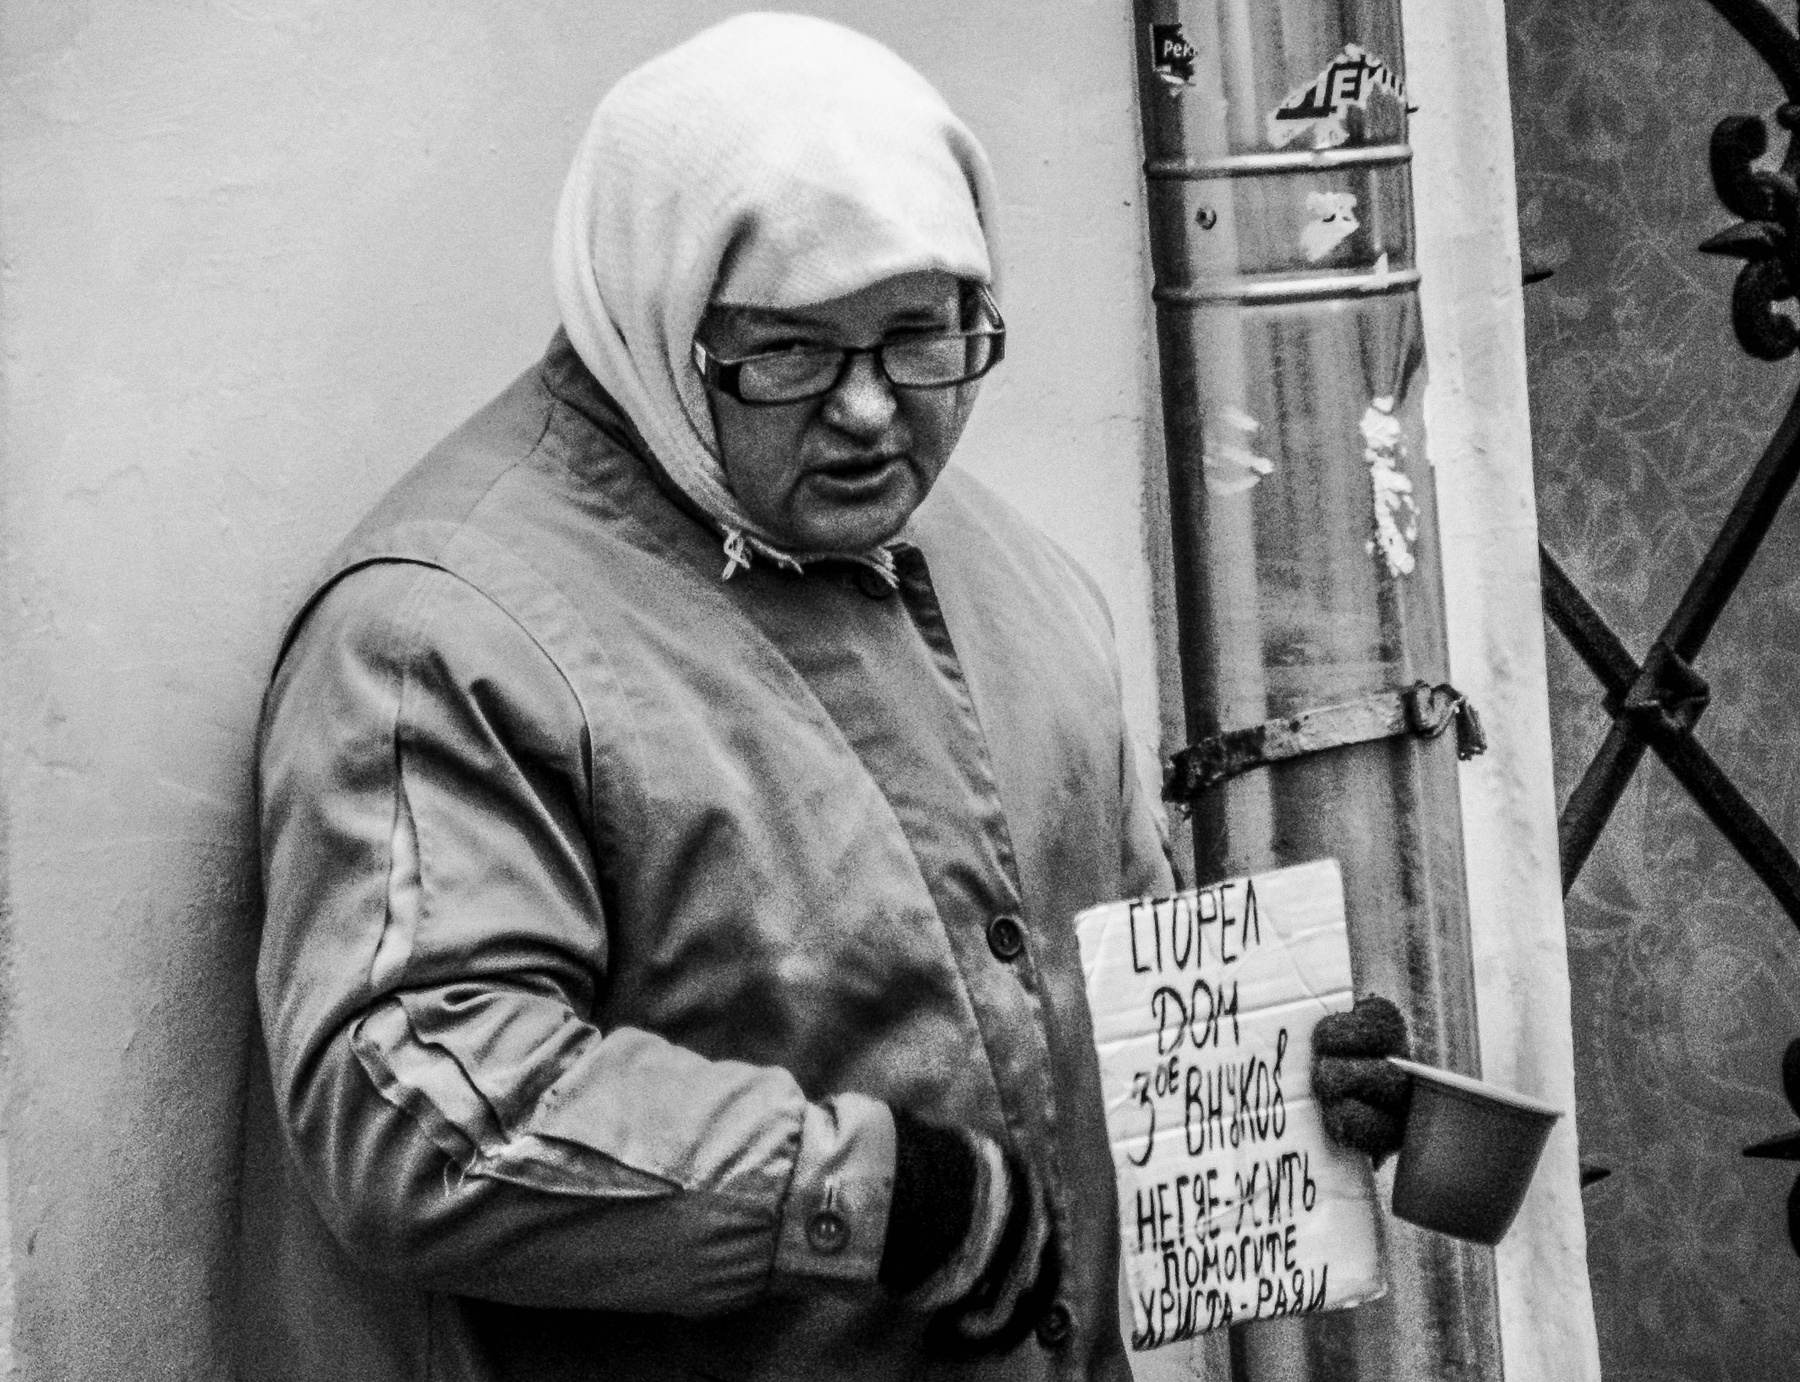 Рек
СГОРЕЛ
ДОМ
3ОЕ ВНУКОВ
НЕГДЕ-ЖИТЬ
ПОМОГИТЕ
ХРИСТА-РАДИ